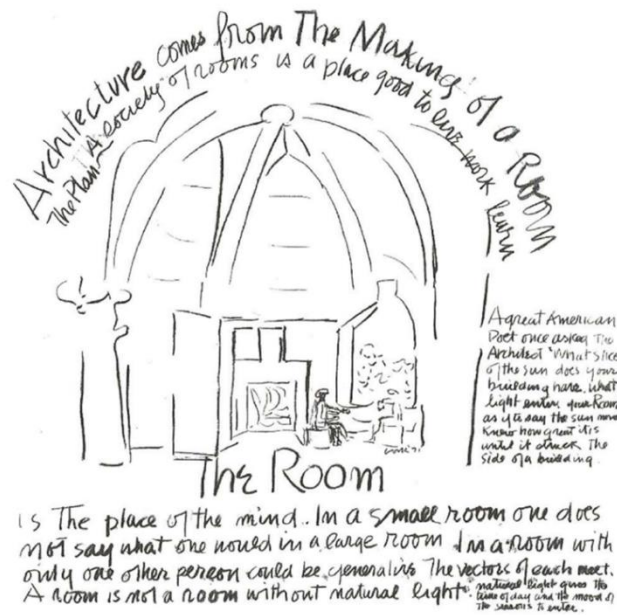 Architecture comes from The Making of a Room
The Plan A society of rooms is a place good to live work learn
A great American
Poet once asked The
Architect 'What slice
of the sun does your
building have. What
light enters your Room
as if to say the sun never
knew how great it is
until it struck The
side of a building.
The Room
is The place of the mind. In a small room one does
not say what one would in a large room In a room with
only one other person could be generative The vectors of each meet.
A room is not a room without natural light
natural light gives The
time of day and the mood of
The seasons to enter.